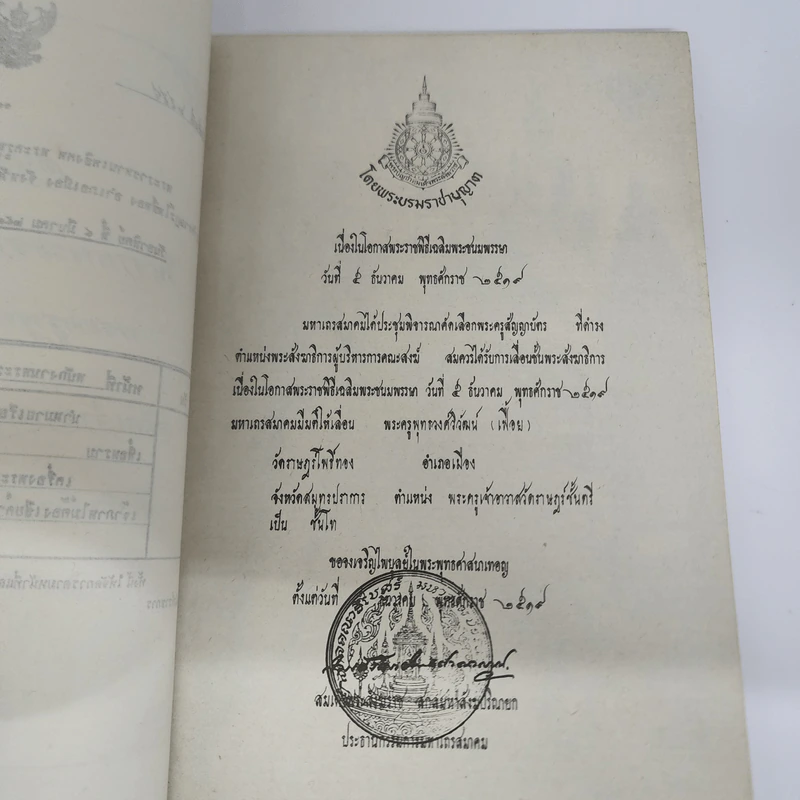 โดยพระบรมราชานุญาต
เนื่องในโอกาสพระราชพิธีเฉลิมพระชนมพรรษา
วันที่ ๕ ธันวาคม พุทธศักราช ๒๕๑๙
มหาเถรสมาคมได้ประชุมพิจารณาคัดเลือกพระครูสัญญาบัตร ที่ดำรง
ตำแหน่งพระสังฆาธิการผู้บริหารการคณะสงฆ์ สมควรได้รับการเลื่อนชั้นพระสังฆาธิการ
เนื่องในโอกาสพระราชพิธีเฉลิมพระชนมพรรษา วันที่ ๕ ธันวาคม พุทธศักราช ๒๕๑๙
มหาเถรสมาคมมีมติให้เลื่อน พระครูพุทธวงศ์วิวัฒน์ (เฟื้อย)
วัดราษฎร์โพธิ์ทอง อำเภอเมือง
จังหวัดสมุทรปราการ ตำแหน่ง พระครูเจ้าอาวาสวัดราษฎร์ชั้นตรี
เป็น ชั้นโท
ขอจงเจริญไพบูลย์ในพระพุทธศาสนาเทอญ
ตั้งแต่วันที่ ธันวาคม พุทธศักราช ๒๕๑๙
สมเด็จพระสังฆราช สกลมหาสังฆปริณายก
ประธานกรรมการมหาเถรสมาคม